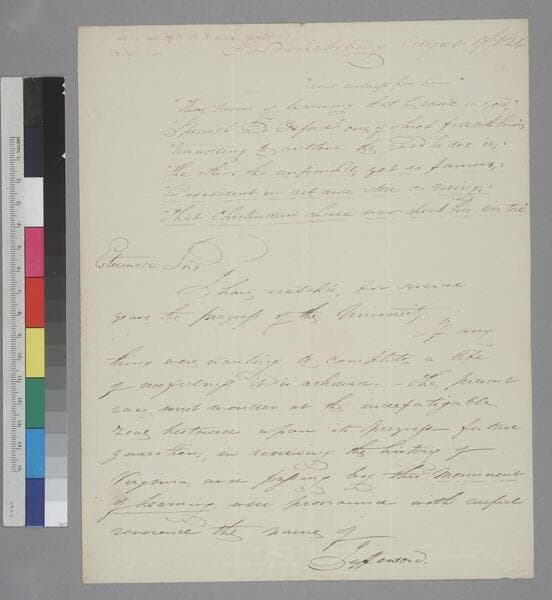 Fredericksburg August 9th 1824
"Ever witness for him"
"Those twins of learning that he rais'd in you,"
"Ipswich and Oxford! one of which fell with him,
"Unwilling to outlive the good it;
"The other, tho unfinish'd, yet so famous,
"Excellent in art and still so rising,
"That Christendom shall ever speak his virtue.
Esteemed Sir,
I have watched, for several
years, the progress of the University.
If any
thing were wanting to complete a life
of usefulness it is achieved. — The present
race must wonder at the indefatigable
zeal bestowed upon its progress future
generations, in reviewing the history of
Virginia, and passing by this Monument
of learning will pronounce with awful
reverence the name of
Jefferson.